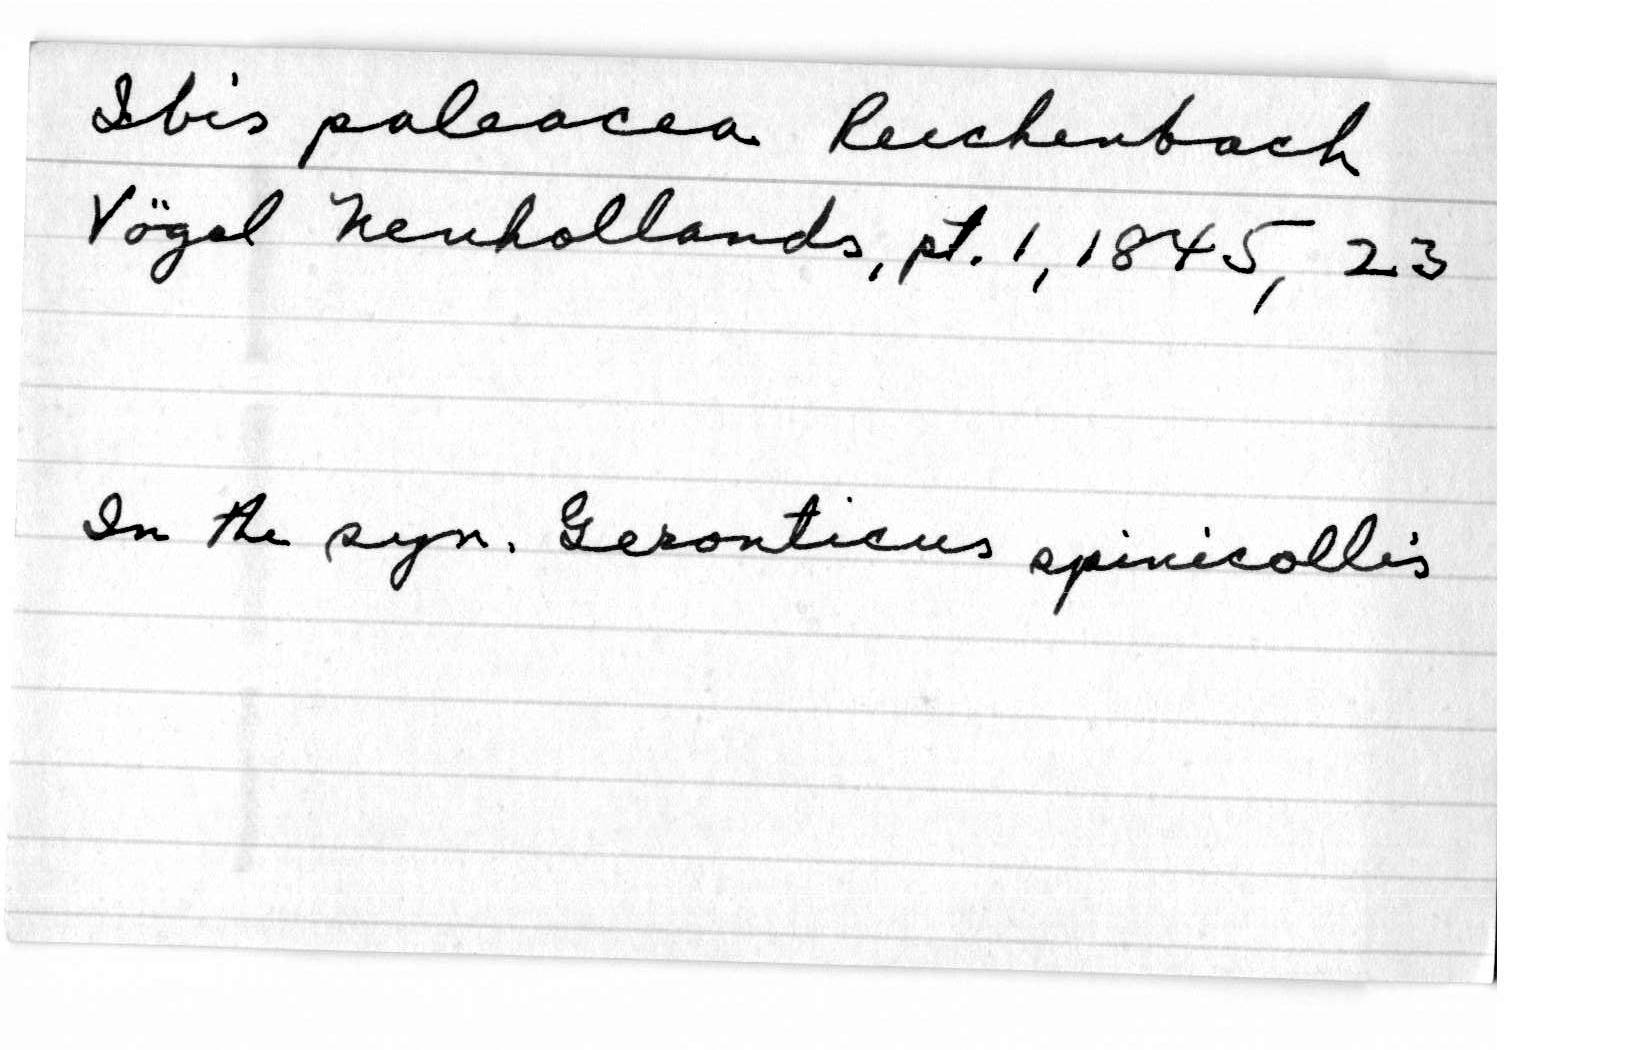 Ibis paleacea Reichenbach
Vögel Neuhollands, pt. 1, 1845, 23
In the syn. Geronticus spinicollis